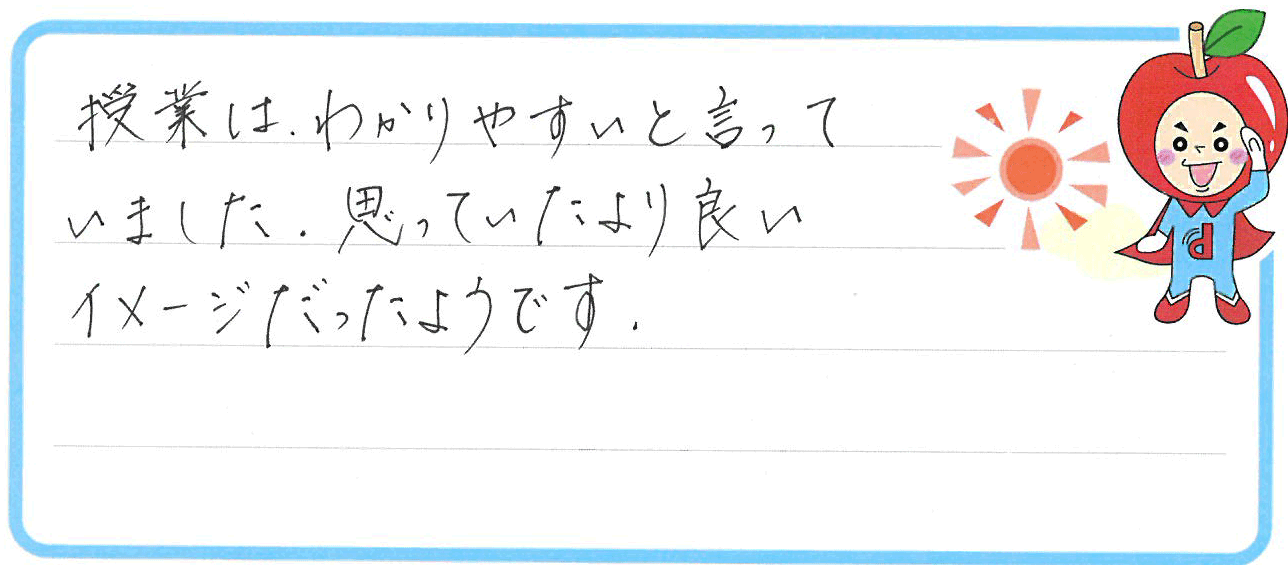 授業は、わかりやすいと言って
いました. 思っていたより良い
イメージだったようです.